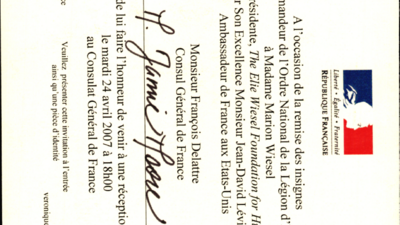 Liberté • Égalité • Fraternité
RÉPUBLIQUE FRANÇAISE
A l'occasion de la remise des insignes
mandeur de l'Ordre National de la Légion d'
à Madame Marion Wiesel
résidente, The Elie Wiesel Foundation for Hu
r Son Excellence Monsieur Jean-David Lévi
Ambassadeur de France aux Etats-Unis
Monsieur François Delattre
Consul Général de France
de lui faire l'honneur de venir à une réceptio
le mardi 24 avril 2007 à 18h00
au Consulat Général de France
Veuillez présenter cette invitation à l'entrée
ainsi qu'une pièce d'identité
veronique